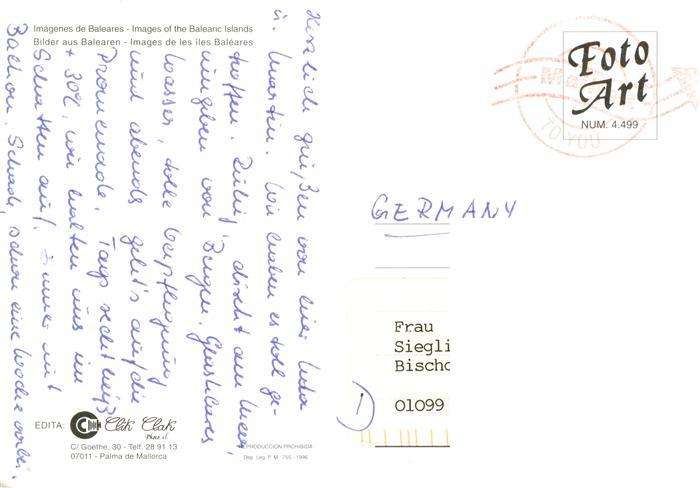 Imágenes de Baleares - Images of the Balearic Islands
Bilder aus Balearen - Images de les îles Baléares
Herzlich grüßen von hier
u. Martin. Wir haben es toll ge-
troffen. Ruhig, direkt am Meer,
umgeben von Bergen. Glasklares
Wasser, tolle Verpflegung
und abends geht's auf die
Promenade. Tags recht heiß
+ 30°, wir halten uns im
Schatten auf. Immer mit
Balkon. Schade, schon eine Woche vorbei.
EDITA: Clik Clak
C/ Goethe, 30 - Telf. 28 91 13
07011 - Palma de Mallorca
REPRODUCCION PROHIBIDA
Dep. Leg. P.M. 755 - 1996
Foto
Art
NUM. 4.499
TO YOU
GERMANY
Frau
Siegli
Bischo
01099